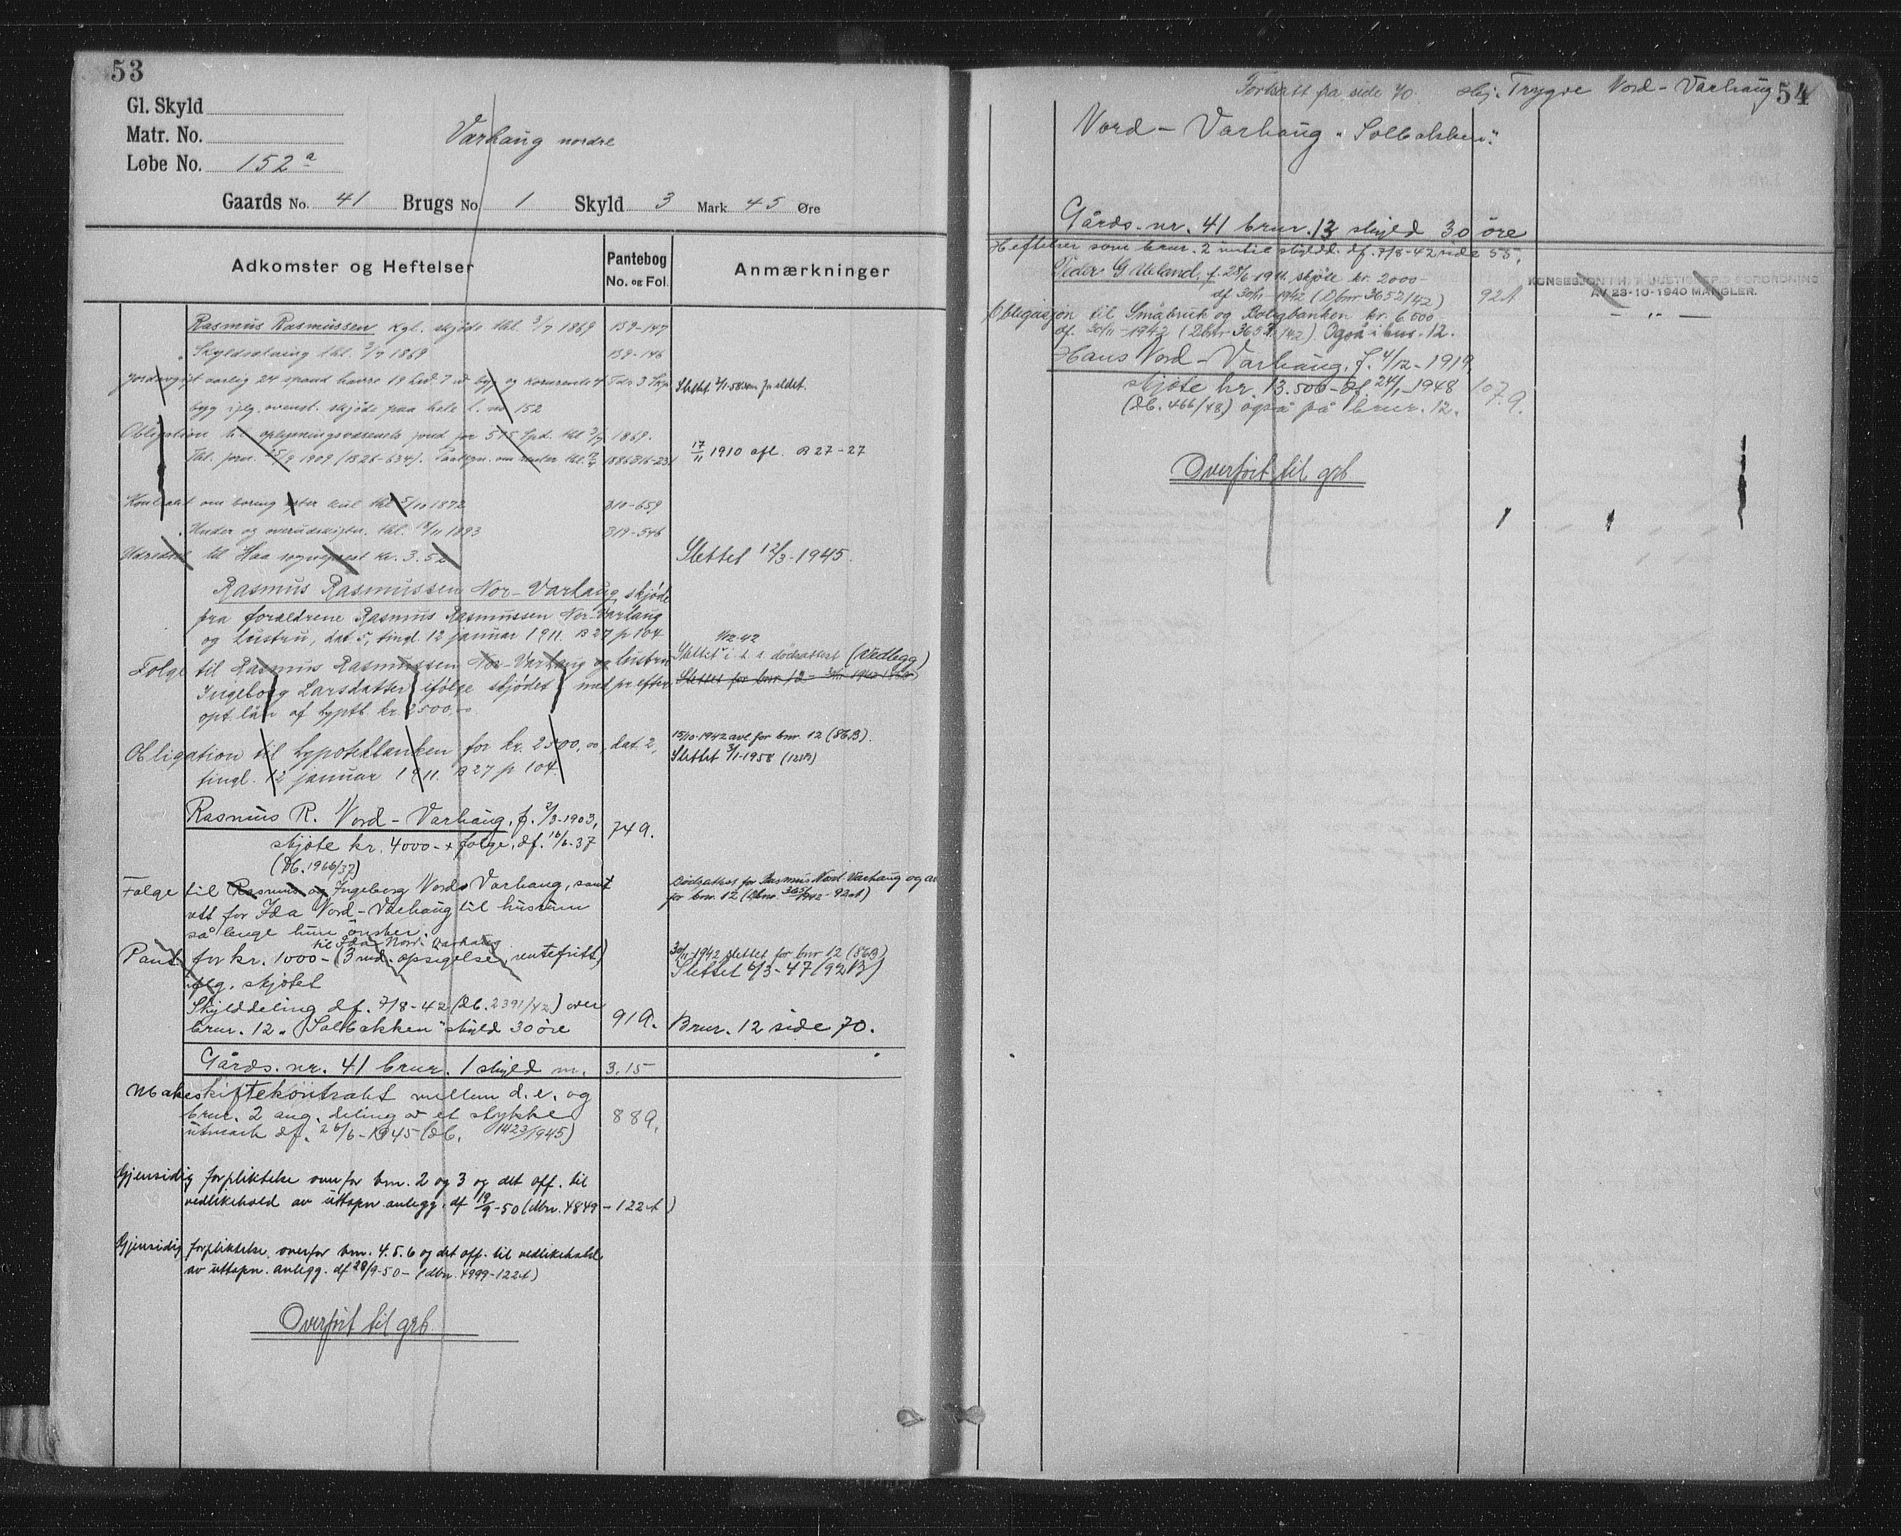 53
Gl. Skyld
Matr. No.
Løbe No. 152 a
Varhaug nordre
Gaards No. 41 Brugs No 1 Skyld 3 Mark 45 Øre
Adkomster og Heftelser
Pantebog
No. og Fol.
Anmærkninger
Rasmus Rasmussen kgl. skjøde thl. 3/7 1869 B9-147
Skyldsætning thl. 3/7 1869 B9-146
aarlig 24 spand havre 19 byg og 4 Tdr 3 Skp Slettet 3/1-58 som foreldet.
byg iflg. ovenst. skjøde paa hele l. no 152
Obligation til oplysningsvæsenets fond for 575 Spd. thl 3/7 1869.
17/11 1910 afl. B 27-27
Kontrakt om boring efter kul thl 5/10 1872 B10-659
thl. 18/11 1893 B19-546
til Haa sogneprest kr. 3.52 Slettet 12/3-1945.
Rasmus Rasmussen Nor-Varhaug skjøde
fra forældrene Rasmus Rasmussen Nor-Varhaug
og hustru, dat 5, tingl. 12 januar 1911. B 27 p 104
1/12-42
Folge til Rasmus Rasmussen Nor-Varhaug og hustru Slettet i h. t. dødsattest (vedlegg)
Ingeborg Larsdatter ifølge skjødet med pr. efter Slettet for bnr 12 - 30/11 1942 (86B)
opt. lån af hyptb. kr. 2500,00
Obligation til hypotekbanken for kr. 2500,00, dat. 2, 15/10-1942 avl. for bnr. 12 (86B).
tingl. 12 januar 1911. B 27 p 104. Slettet 3/1-1958
Rasmus R. Nord-Varhaug, f. 2/3-1903,
skjøte kr. 4000- + folge, df. 16/6-37 74 9.
(Db. 1966/37)
Folge til Rasmus og Ingeborg Nord-Varhaug, samt Dødsattest for Rasmus Nord-Varhaug og avl.
rett for Ida Nord-Varhaug til husrum for bnr. 12 (Dbnr. 3651/1942 - 92A)
så lenge hun ønsker.
til Ida Nord-Varhaug
Pant for kr. 1000- (3 md. opsigelse, rentefritt) 30/11-1942 slettet for bnr 12 (86B)
iflg. skjøtet Slettet 6/3-47 (92 B)
Skylddeling df. 7/8-42 (Db. 2391/42) over
brnr. 12 "Solbakken" skyld 30 øre 91 9. Brnr. 12 side 70.
Gårds. nr. 41 brnr. 1 skyld m. 3,15
Makeskiftekontrakt mellem d. e. og
brnr. 2 ang. deling av et stykke 88 9.
utmark df. 26/6-1945 (Db. 1423/1945)
Gjensidig forpliktelse overfor bnr. 2 og 3 og det off. til
vedlikehold av uttapn. anlegg, df 19/9-50 (dbnr. 4849 - 122A)
Gjensidig forpliktelse overfor bnr. 4.5.6 og det off. til vedlikehold
av uttapn. anlegg. df 28/9-50 - (dbnr. 4999-122A)
Overført til grb.
Fortsatt fra side 70. skj. Trygve Nord-Varhaug
54
Nord-Varhaug "Solbakken".
Gårds. nr. 41 brnr. 13 skyld 30 øre
Heftelser som brnr. 2 inntil skyldd. df. 7/8-42 side 55.
Peder G. Ueland, f. 28/6-1911. skjøte kr. 2000-
df 30/11-1942 (Dbnr 3652/42) 92A
KONSESJON I H. T. JUSTISDEP.S FORORDNING
AV 23-10-1940 MANGLER.
Obligasjon til Småbruk og Boligbanken kr. 6.000-
df. 30/11-1942 (Dbnr 3653/42). Også i bnr. 12. — " —
Hans Nord-Varhaug, f. 4/12-1919
skjøte kr. 13.500- df. 24/1-1948 107 9.
(Db. 466/48) også på brnr. 12.
Overført til grb